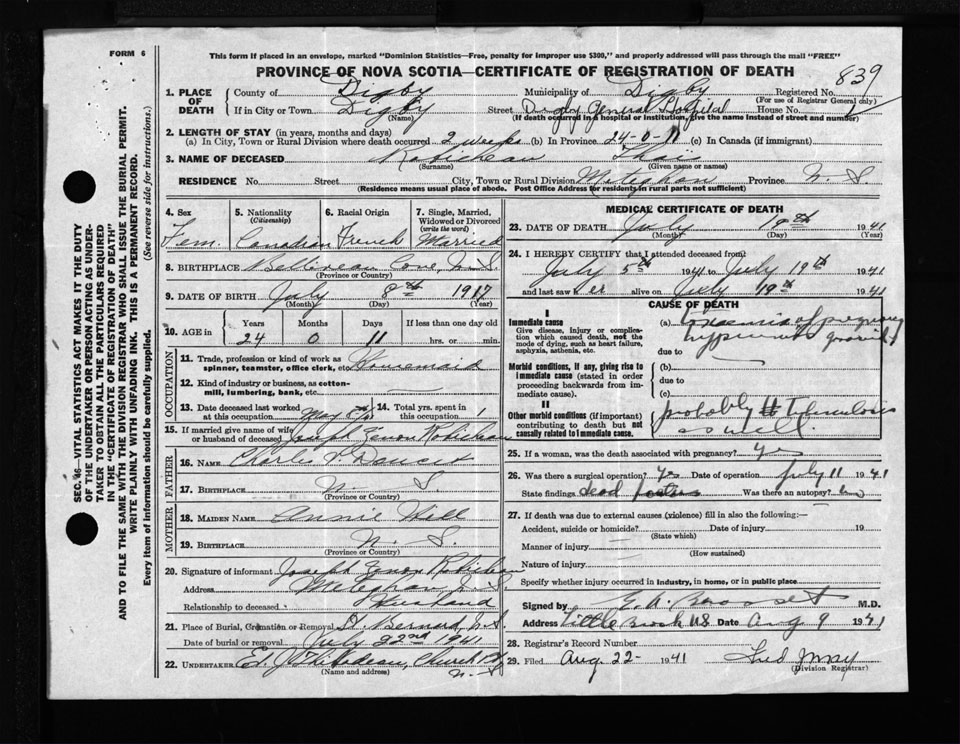 FORM 6
This form if placed in an envelope, marked "Dominion Statistics—Free, penalty for improper use $300," and properly addressed will pass through the mail "FREE"
PROVINCE OF NOVA SCOTIA—CERTIFICATE OF REGISTRATION OF DEATH
839
1. PLACE OF DEATH
County of Digby Municipality of Digby Registered No.
(For use of Registrar General only)
If in City or Town Digby Street Digby General Hospital House No.
(Name) (If death occurred in a hospital or institution, give name instead of street and number)
2. LENGTH OF STAY (in years, months and days)
(a) In City, Town or Rural Division where death occurred 2 weeks (b) In Province 24-0-11 (c) In Canada (if immigrant)
3. NAME OF DECEASED Robicheau
(Surname) (Given name or names)
RESIDENCE No. Street City, Town or Rural Division Meteghan Province N. S.
(Residence means usual place of abode. Post Office Address for residents in rural parts not sufficient)
4. Sex
Fem.
5. Nationality
(Citizenship)
Canadian
6. Racial Origin
French
7. Single, Married, Widowed or Divorced
(write the word)
Married
8. BIRTHPLACE Cove, N.S.
(Province or Country)
9. DATE OF BIRTH July 8th 1917
(Month) (Day) (Year)
10. AGE in
Years Months Days If less than one day old
24 0 11 hrs. or min.
OCCUPATION
11. Trade, profession or kind of work as spinner, teamster, office clerk, etc.
12. Kind of industry or business, as cotton-mill, lumbering, bank, etc.
13. Date deceased last worked at this occupation May
14. Total yrs. spent in this occupation 1
15. If married give name of wife or husband of deceased Joseph Robicheau
FATHER
16. NAME Charlie
17. BIRTHPLACE N. S.
MOTHER
18. MAIDEN NAME Annie
19. BIRTHPLACE N. S.
(Province or Country)
20. Signature of informant Joseph Robicheau
Address Meteghan N.S.
Relationship to deceased Husband
21. Place of Burial, Cremation or Removal St. Bernard, N.S.
Date of burial or removal July 22nd 1941
22. UNDERTAKER E. J.
N.S.
(Name and address)
MEDICAL CERTIFICATE OF DEATH
23. DATE OF DEATH July 19th 1941
(Month) (Day) (Year)
24. I HEREBY CERTIFY that I attended deceased from
July 5th 1941 to July 19th 1941
and last saw her alive on July 19th 1941
CAUSE OF DEATH
I
Immediate cause
Give disease, injury or complication which caused death, not the mode of dying, such as heart failure, asphyxia, asthenia, etc.
(a) Toxaemia of pregnancy
due to
Morbid conditions, if any, giving rise to immediate cause (stated in order proceeding backwards from immediate cause).
(b)
due to
(c)
II
Other morbid conditions (if important) contributing to death but not causally related to immediate cause.
probably Tuberculosis
as well.
25. If a woman, was the death associated with pregnancy? Yes
26. Was there a surgical operation? Yes Date of operation July 11 1941
State findings dead Was there an autopsy? no
27. If death was due to external causes (violence) fill in also the following:—
Accident, suicide or homicide? Date of injury 19
(State which)
Manner of injury
(How sustained)
Nature of injury
Specify whether injury occurred in industry, in home, or in public place
Signed by M.D.
Address Little Brook NS Date Aug 9 1941
28. Registrar's Record Number
29. Filed Aug. 22- 1941
(Division Registrar)
SEC. 46—VITAL STATISTICS ACT MAKES IT THE DUTY OF THE UNDERTAKER OR PERSON ACTING AS UNDERTAKER TO OBTAIN ALL THE PARTICULARS REQUIRED IN THE "CERTIFICATE OF REGISTRATION OF DEATH" AND TO FILE THE SAME WITH THE DIVISION REGISTRAR WHO SHALL ISSUE THE BURIAL PERMIT.
WRITE PLAINLY WITH UNFADING INK. THIS IS A PERMANENT RECORD.
Every item of information should be carefully supplied. (See reverse side for instructions.)